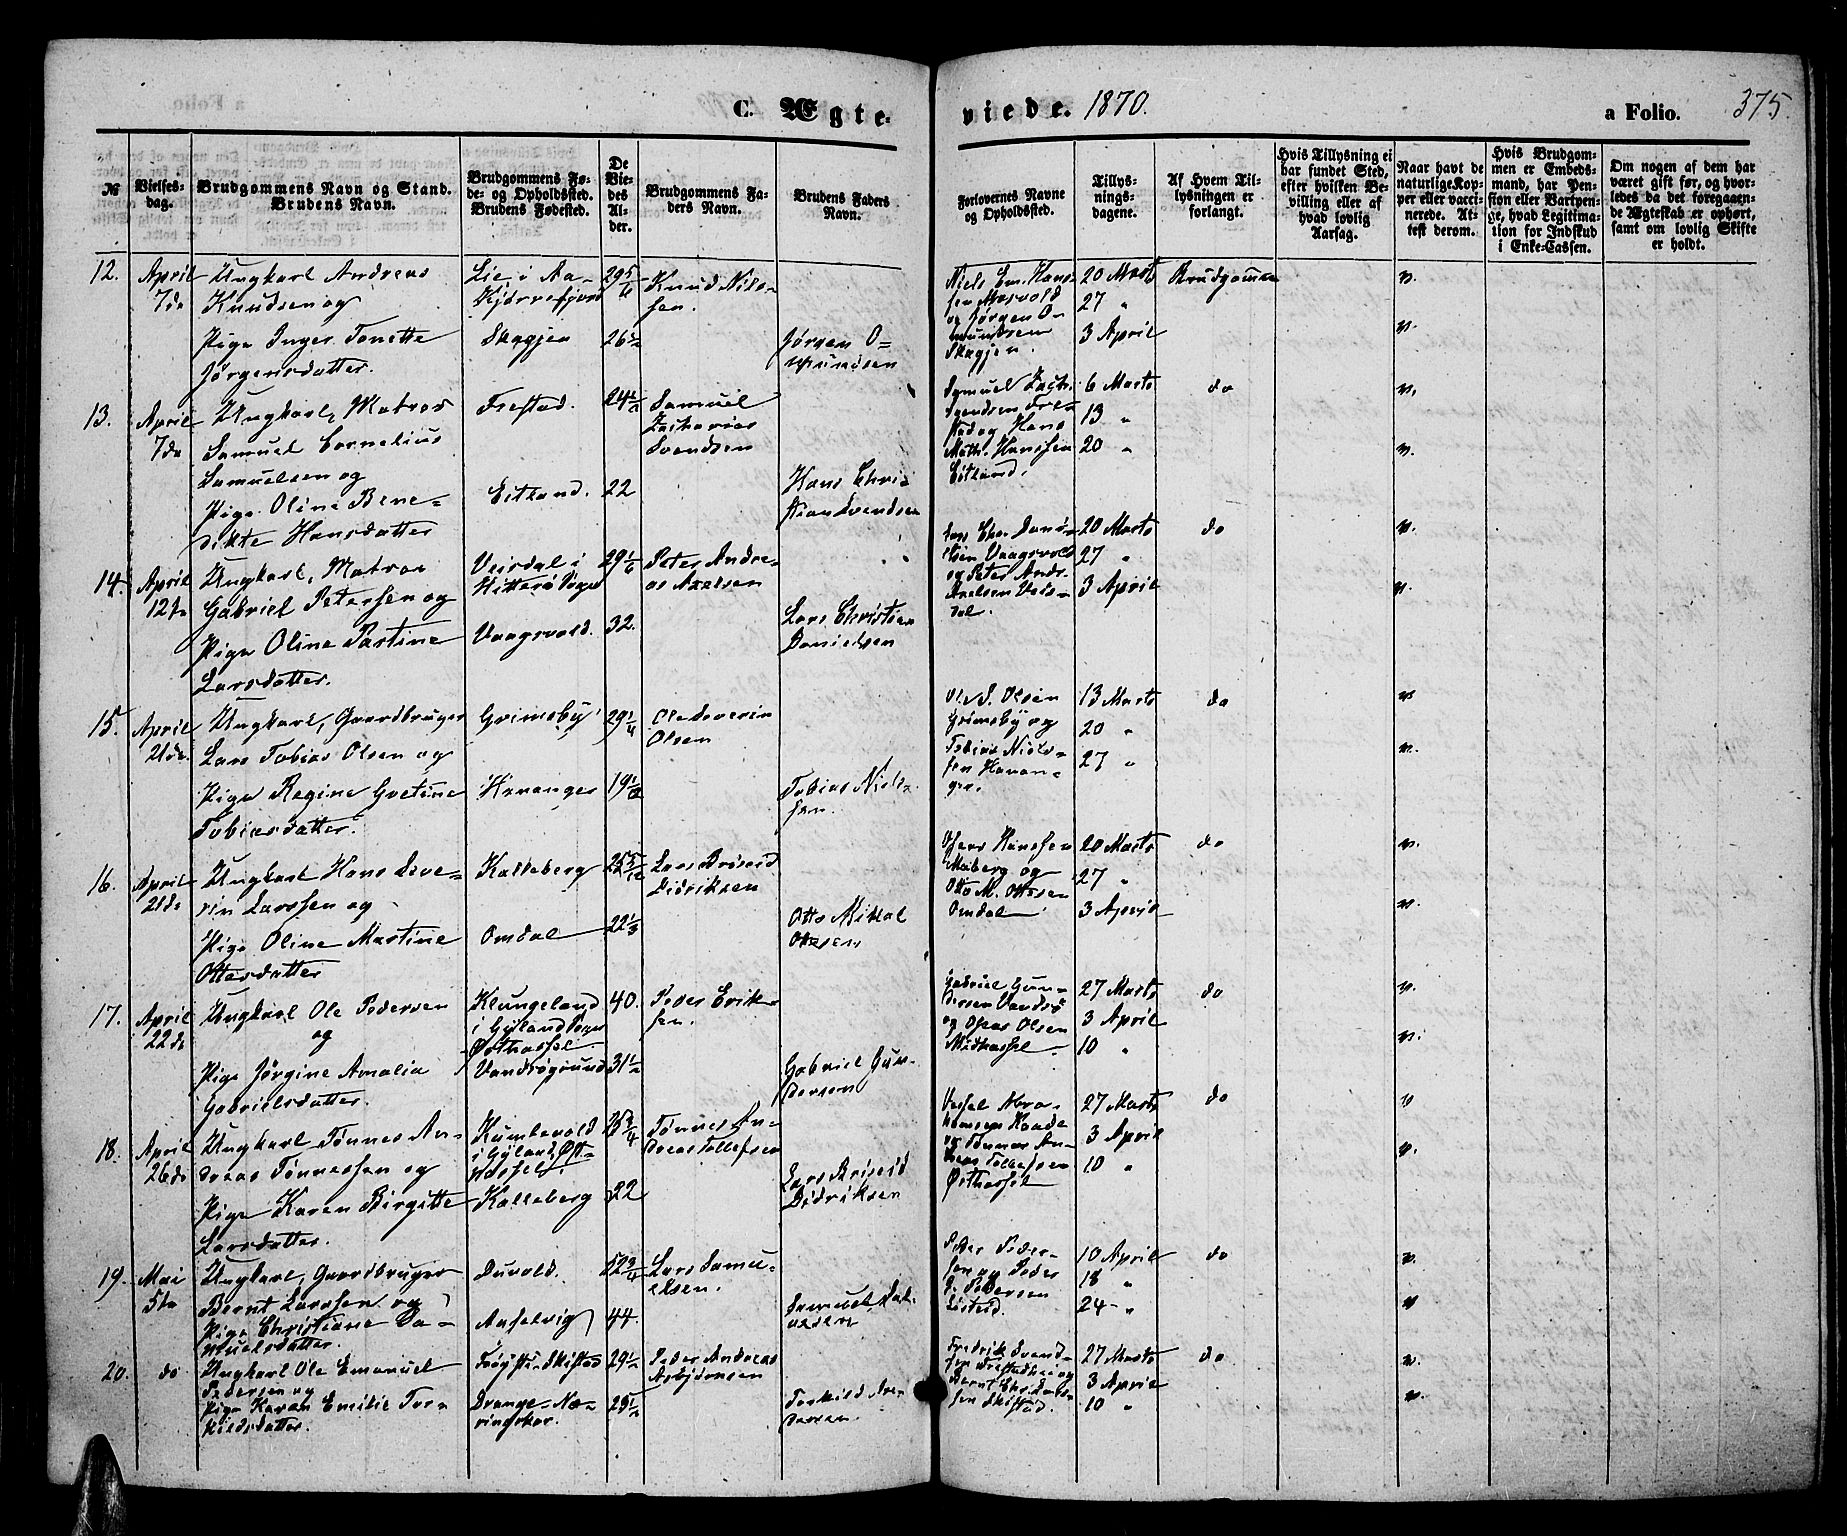 C. Ægte- viede. 1870. a Folio. 375.
№
Vielses-
dag.
Brudgommens Navn og Stand.
Brudens Navn.
Brudgommens Fø-
de- og Opholdssted.
Brudens Fødested.
De
Vie-
des
Al-
der.
Brudgommens Fa-
ders Navn.
Brudens Faders
Navn.
Forlovernes Navne
og Opholdssted.
Tillys-
nings-
dagene.
Af Hvem Til-
lysningen er
forlangt.
Hvis Tillysning ei
har fundet Sted,
efter hvilken Be-
villing eller af
hvad lovlig
Aarsag.
Naar havt de
naturlige Kop-
per eller vacci-
nerede. At-
test derom.
Hvis Brudgom-
men er Embeds-
mand, har Pen-
sion eller Vartpen-
ge, hvad Legitima-
tion for Indskud
i Enke-Cassen.
Om nogen af dem har
været gift før, og hvor-
ledes da det foregaaen-
de Ægteskab er ophørt,
samt om lovlig Skifte
er holdt.
12.
April
7de
Ungkarl Andreas
Knudsen og
Pige Inger Tonette
Jørgensdatter.
Lie i Aa-
Skeggjen
29 5/6
26 1/2
Knud Nils-
sen.
Jørgen O-
mundsen
Niels Em. Hans-
sen Mosvold
og Jørgen O-
mundsen
Skeggjen.
20 Marts
27 "
3 April
Brudgommen
v.
v.
13.
April
7de
Ungkarl, Matros
Samuel Cornelius
Samuelsen og
Pige Oline Bene-
dikte Hansdatter
Frestad.
Eitland.
22
Samuel
Zacharias
Svendsen
Hans Chri-
stian Svendsen
Samuel Zach.
Svendsen Fre-
stad og Hans
Math. Hanssen
Eitland.
6 Marts
13 "
20 "
do
v.
v.
14.
April
12te
Ungkarl, Matros
Gabriel Petersen og
Pige Oline Bastine
Larsdatter.
Veisdal i
Hitterø Sogn
Vaagsvold.
29 1/6
32.
Peter Andre-
as Axelsen
Lars Christian
Danielsen
Lars Chr. Dani-
elsen Vaagsvold
og Peter Andr.
Axelsen Veis-
dal.
20 Marts
27 "
3 April
do
v.
v.
15.
April
21de
Ungkarl, Gaardbruger
Lars Tobias Olsen og
Pige Regine Gurine
Tobiasdatter.
Grimsby
Havanger
29 1/4
Ole Severin
Olsen
Tobias Niel-
sen.
Ole S. Olsen
Grimsby og
Tobias Niel-
sen Havan-
ger.
13 Marts
20 "
27 "
do
v.
v.
16.
April
21de
Ungkarl Hans Seve-
rin Larssen og
Pige Oline Martine
Ottersdatter
Kalleberg
Omdal
25 5/12
22 1/3
Lars Brisei​d
Didriksen
Otto Mikal
Ottesen
Hanssen
Meberg og
Otto M. Ottesen
Omdal.
20 Marts
27 "
3 April
do
v.
v.
17.
April
22de
Ungkarl Ole Pedersen
og
Pige Jørgine Amalia
Gabrielsdatter.
Klungeland
i Gyland Sogn
Østhassel
Vandsøgrund
40.
31 1/2
Peder Erik-
sen.
Gabriel Gun-
dersen
Gabriel Gun-
dersen Vandsø
og Olsen
Midhassel.
27 Marts
3 April
10 "
do
v.
v.
18.
April
26de
Ungkarl Tønnes An-
dreas Tønnessen og
Pige Karen Birgitte
Larsdatter.
Kumlevold
i Gyland, Øst-
hassel.
Kalleberg
25 3/4
22
Tønnes An-
dreas Tollefsen
Lars Briseid
Didriksen
Abra-
hamsen
og Tønnes An-
dreas Tollefsen
Østhassel
27 Marts
3 April
10 "
do
v
v.
19.
Mai
5te
Ungkarl, Gaardbruger
Bernt Larssen og
Pige Christiane Sa-
muelsdatter.
Duvold.
Aaselvig
52 3/4
44.
Lars Samu-
elsen.
Samuel
Peder Peder-
sen og Peder
Pedersen
10 April
18 "
24 - "
do
v.
v
20.
do
Ungkarl Ole Emanuel
Pedersen og
Pige Karen Emilie Tor-
kildsdatter.
Drange - Næ-
ringskar.
29 1/2
25 1/2
Peder Andreas
Asbjørnsen
Torkild
Fredrik Svend-
Bernt Chr. Lars-
27 Marts
3 April
10 "
do
v.
v.